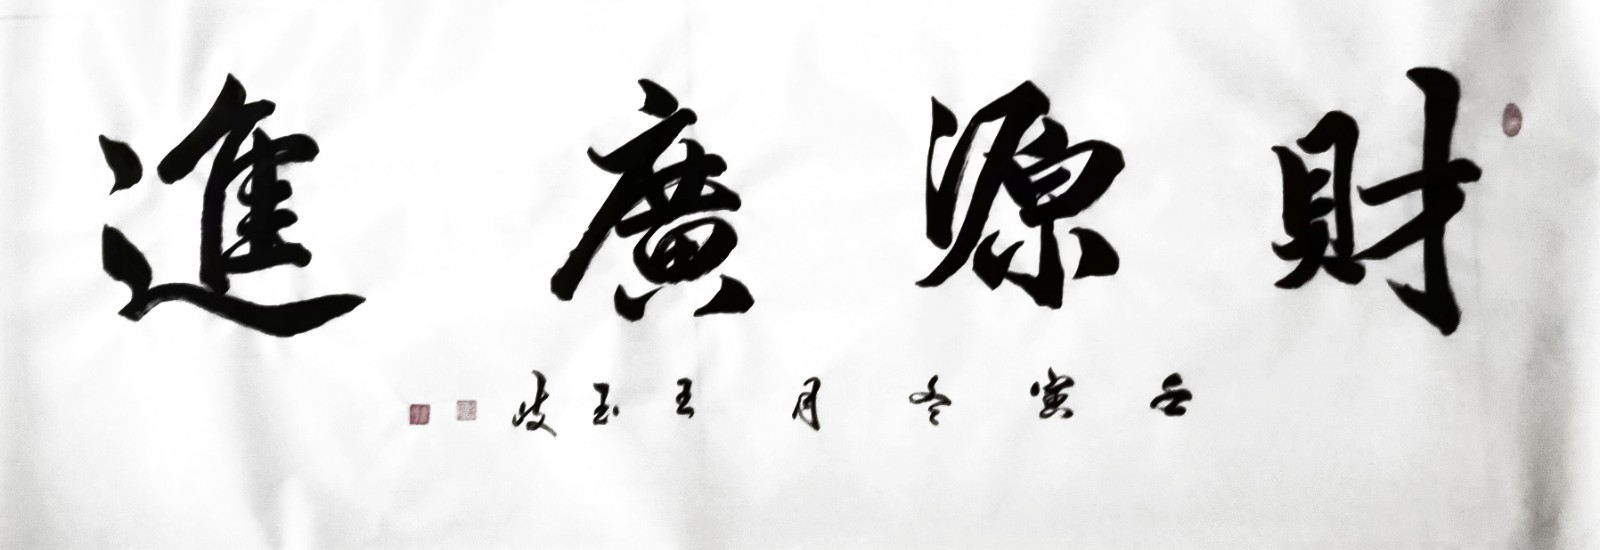 財源廣進
壬寅冬月王玉岐